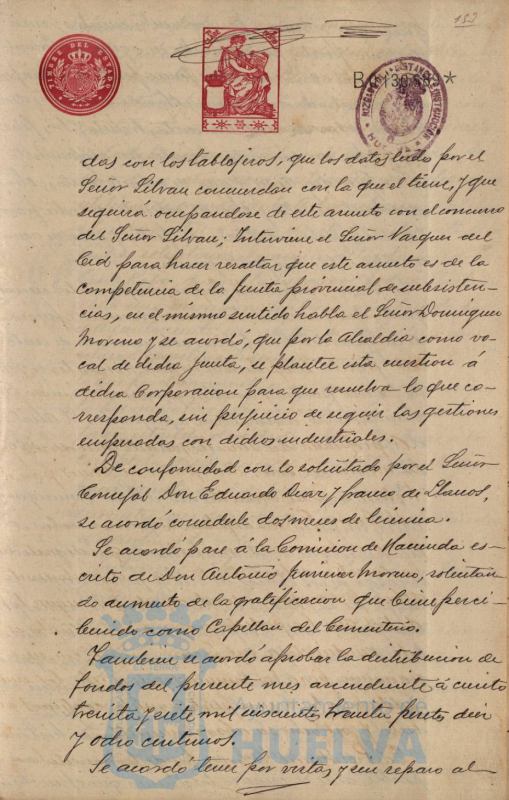 132
TIMBRE DEL ESTADO
HUELVA
das con los tablajeros, que los datos leido por el
Señor Silvan concuerdan con la que el tiene, y que
seguirá ocupandose de este asunto con el concurso
del Señor Silvan; Interviene el Señor Vazquez del
Cid para hacer resaltar que este asunto es de la
competencia de la Junta provincial de subsisten-
cias, en el mismo sentido habla el Señor Dominguez
Moreno y se acordó, que por la Alcaldia como vo-
cal de dicha Junta, se plantee esta cuestion á
dicha Corporacion para que resuelva lo que co-
rresponda, sin perjuicio de seguir las gestiones
empezadas con dichos industriales.
De conformidad con lo solicitado por el Señor
Concejal Don Eduardo Diaz y Franco de Llanos,
se acordó concederle dos meses de licencia.
Se acordó pase á la Comision de Hacienda es-
crito de Don Antonio Moreno, solicitan-
do aumento de la gratificacion que tiene perci-
biendo como Capellan del Cementerio.
Tambien se acordó aprobar la distribucion de
fondos del presente mes ascendente á ciento
treinta y siete mil treinta pesetas diez
y ocho centimos.
Se acordó tener por vista y sin reparo al
Ayuntamiento de
HUELVA